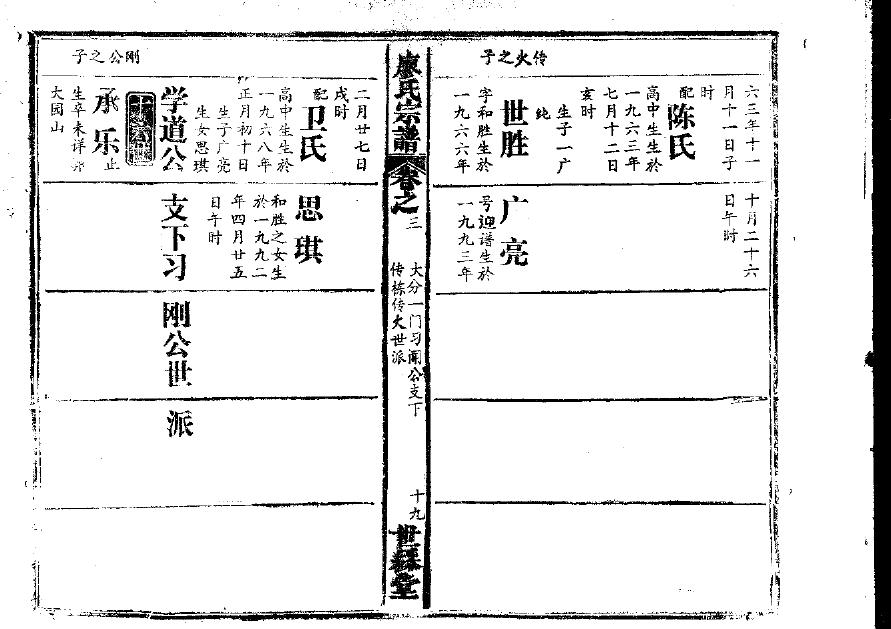 传火之子
六三年十一
月十一日子
时
配
陈氏
高中生生於
一九六三年
七月十二日
亥时
生子一广
纯
世胜
字和胜生於
一九六六年
十月二十六
日午时
广亮
号迎谱生於
一九九三年
廖氏宗譜
卷之
三
大分一门习阐公支下
传栋传火世派
十九
世綵堂
刚公之子
二月廿七日
戌时
配
卫氏
高中生生於
一九六八年
正月初十日
生子广亮
生女思琪
学道公
承乐
止
生卒未详葬
大园山
思琪
和胜之女生
於一九九二
年四月廿五
日午时
支下习
刚公世
派